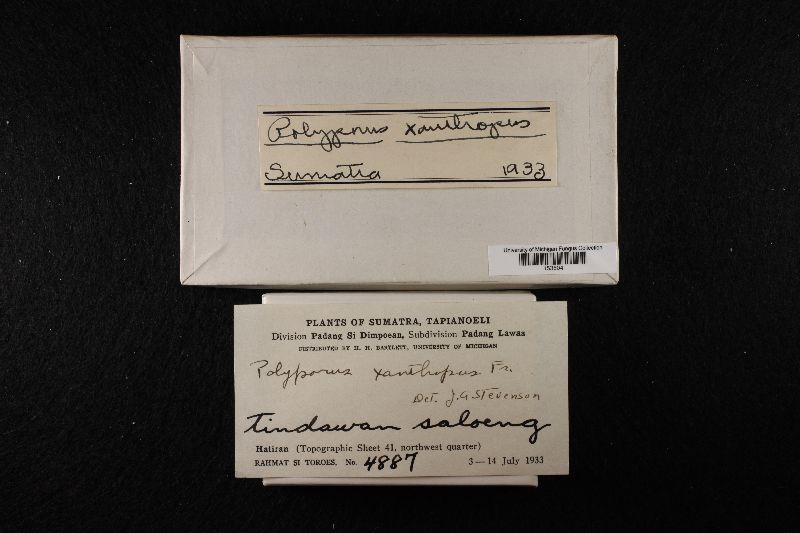 Polyporus xanthopus
Sumatra 1933
University of Michigan Fungus Collection
PLANTS OF SUMATRA, TAPIANOELI
Division Padang Si Dimpoean, Subdivision Padang Lawas
DISTRIBUTED BY H. H. BARTLETT, UNIVERSITY OF MICHIGAN
Polyporus xanthopus Fr.
Det. J.A. Stevenson
tindawan saloeng
Hatiran (Topographic Sheet 41, northwest quarter)
RAHMAT SI TOROES, No. 4887 3—14 July 1933